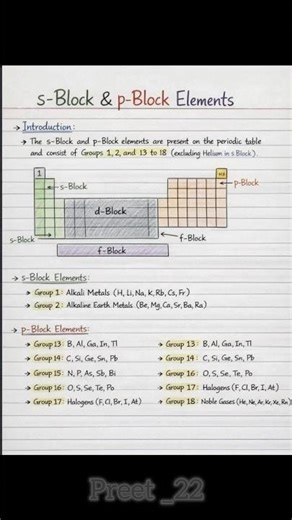 s-Block & p-Block Elements
→ Introduction:
→ The s-Block and p-Block elements are present on the periodic table
and consist of Groups 1, 2, and 13 to 18 (excluding Helium in s Block).
1
s-Block
p-Block
d-Block
s-Block
f-Block
f-Block
→ s-Block Elements:
→ Group 1: Alkali Metals (H, Li, Na, K, Rb, Cs, Fr)
→ Group 2: Alkaline Earth Metals (Be, Mg, Ca, Sr, Ba, Ra)
→ p-Block Elements:
→ Group 13: B, Al, Ga, In, Tl
→ Group 14: C, Si, Ge, Sn, Pb
→ Group 15: N, P, As, Sb, Bi
→ Group 16: O, S, Se, Te, Po
→ Group 17: Halogens (F, Cl, Br, I, At)
→ Group 13: B, Al, Ga, In, Tl
→ Group 14: C, Si, Ge, Sn, Pb
→ Group 16: O, S, Se, Te, Po
→ Group 17: Halogens (F, Cl, Br, I, At)
→ Group 18: Noble Gases (He, Ne, Ar, Kr, Xe, Rn)
Preet _22